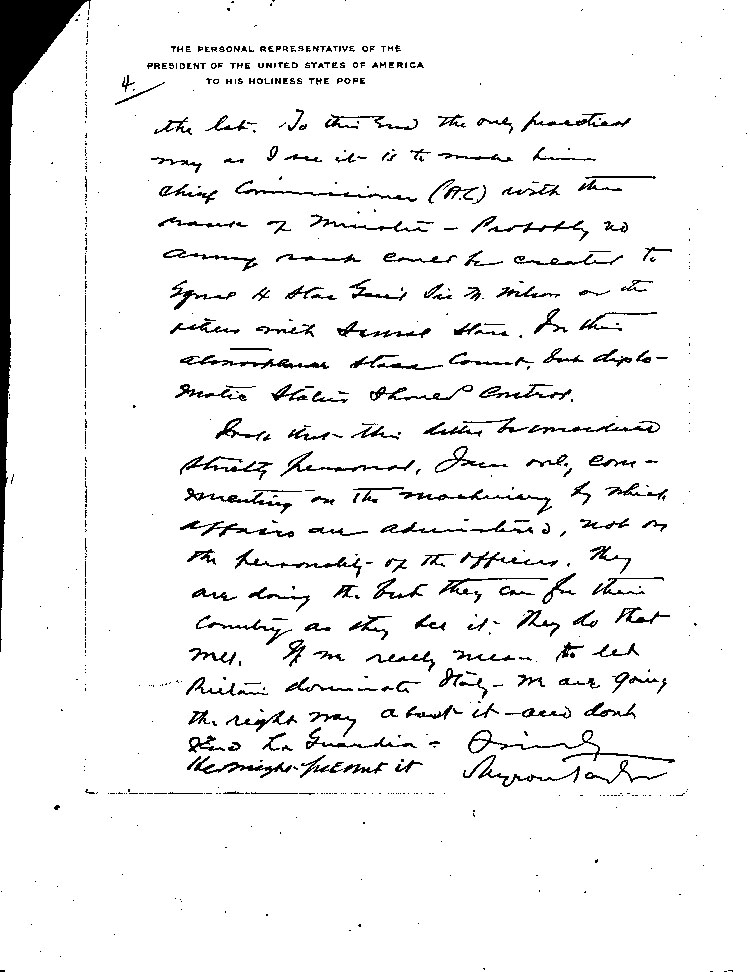 THE PERSONAL REPRESENTATIVE OF THE
PRESIDENT OF THE UNITED STATES OF AMERICA
TO HIS HOLINESS THE POPE
4.
the lot. To this end the only practical
way as I see it is to make him
Chief Commissioner (A.C) with the
rank of Minister – Probably no
army rank could be created to
equal 4 Star Gen'l Sir M. Wilson or the
others with several stars. In this
atmosphere stars count, but diplo-
matic status should control.
that this letter be considered
strictly personal, I am only com-
menting on the machinery by which
affairs are administered, not on
the personality of the officers. They
are doing the best they can for their
Country as they see it. They do that
well. If we really mean to let
Britain dominate Italy – we are going
the right way about it – and dont
send La Guardia –
He might prevent it
Myron Taylor